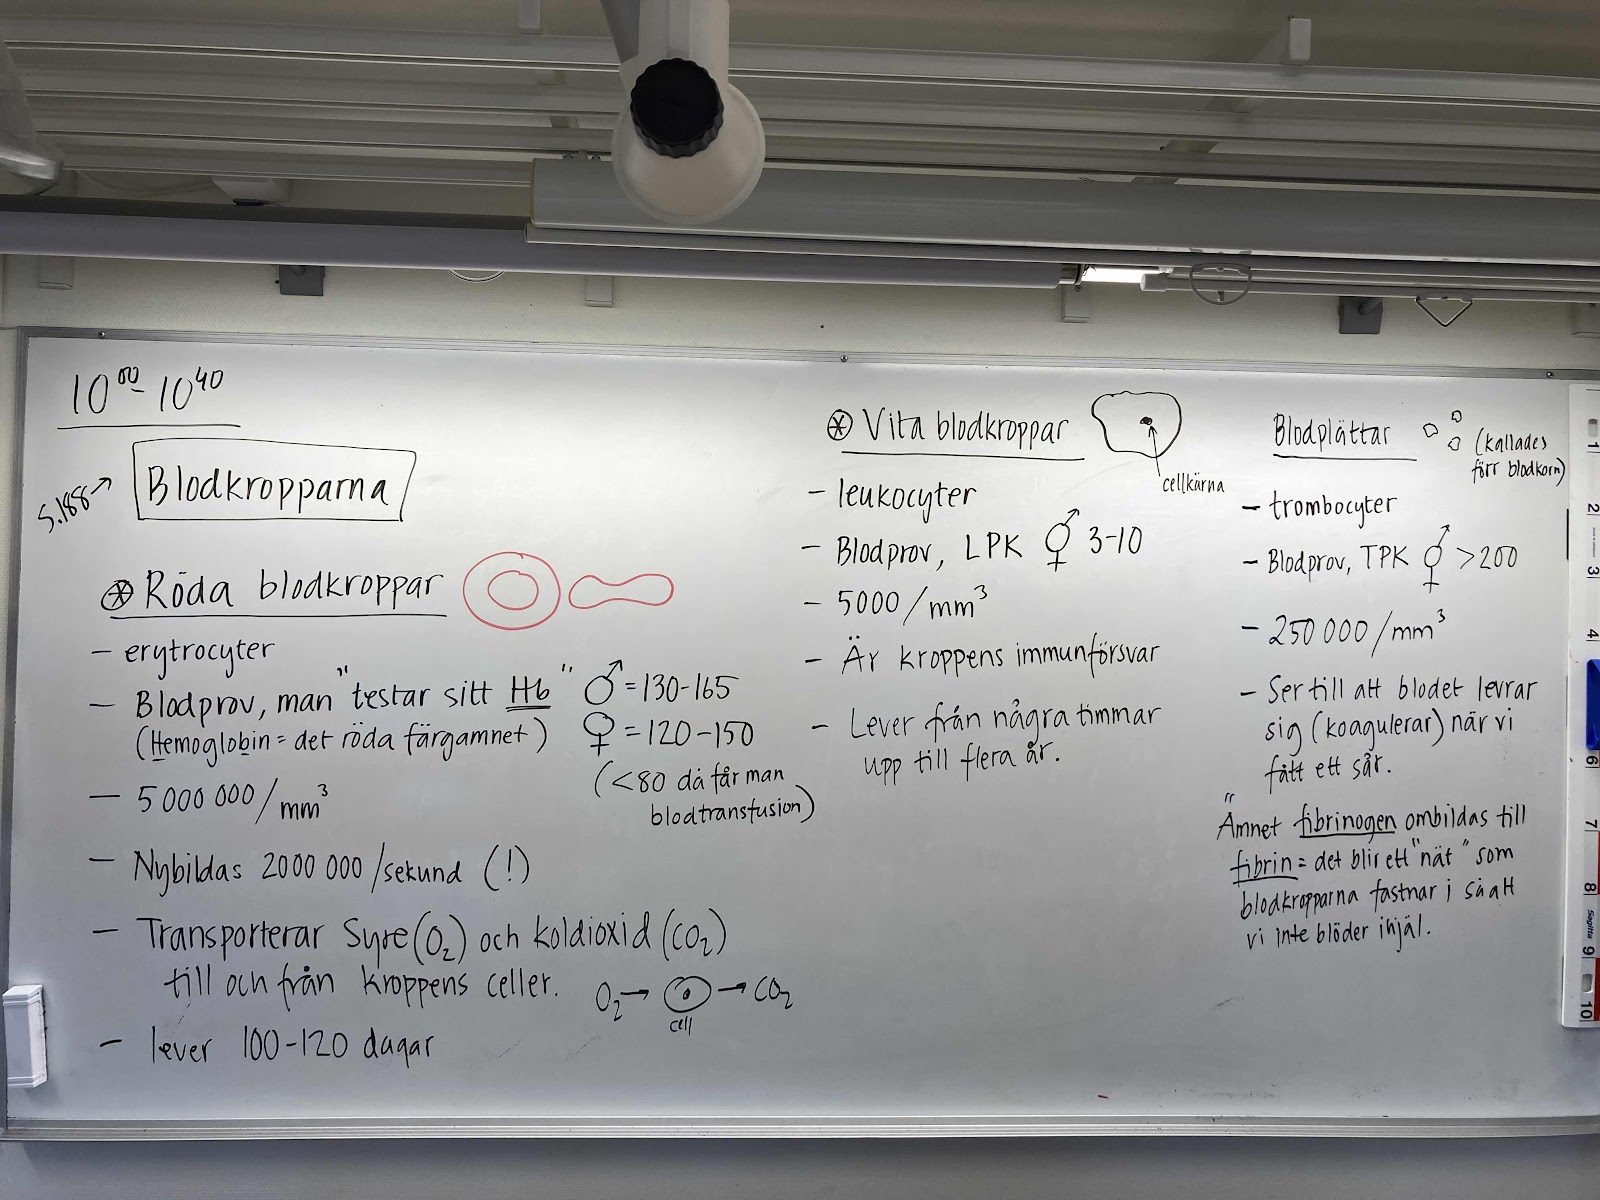 10⁰⁰-10⁴⁰
s.188→
Blodkropparna
Röda blodkroppar
- erytrocyter
- Blodprov, man "testar sitt Hb" ♂=130-165
(Hemoglobin = det röda färgamnet) ♀=120-150
(<80 då får man
blodtransfusion)
- 5000 000/mm³
- Nybildas 2000 000/sekund (!)
- Transporterar Syre(O₂) och koldioxid (CO₂)
till och från kroppens celler.
O₂→ →CO₂
cell
- lever 100-120 dagar
Vita blodkroppar
cellkärna
- leukocyter
- Blodprov, LPK ⚥ 3-10
- 5000/mm³
- Är kroppens immunförsvar
- Lever från några timmar
upp till flera år.
Blodplättar
(kallades
förr blodkorn)
- trombocyter
- Blodprov, TPK ⚥ >200
- 250 000/mm³
- Ser till att blodet levrar
sig (koagulerar) när vi
fått ett sår.
Ämnet fibrinogen ombildas till
fibrin = det blir ett "nät" som
blodkropparna fastnar i så att
vi inte blöder ihjäl.
1
2
3
4
6
7
8
Sagitta
9
10